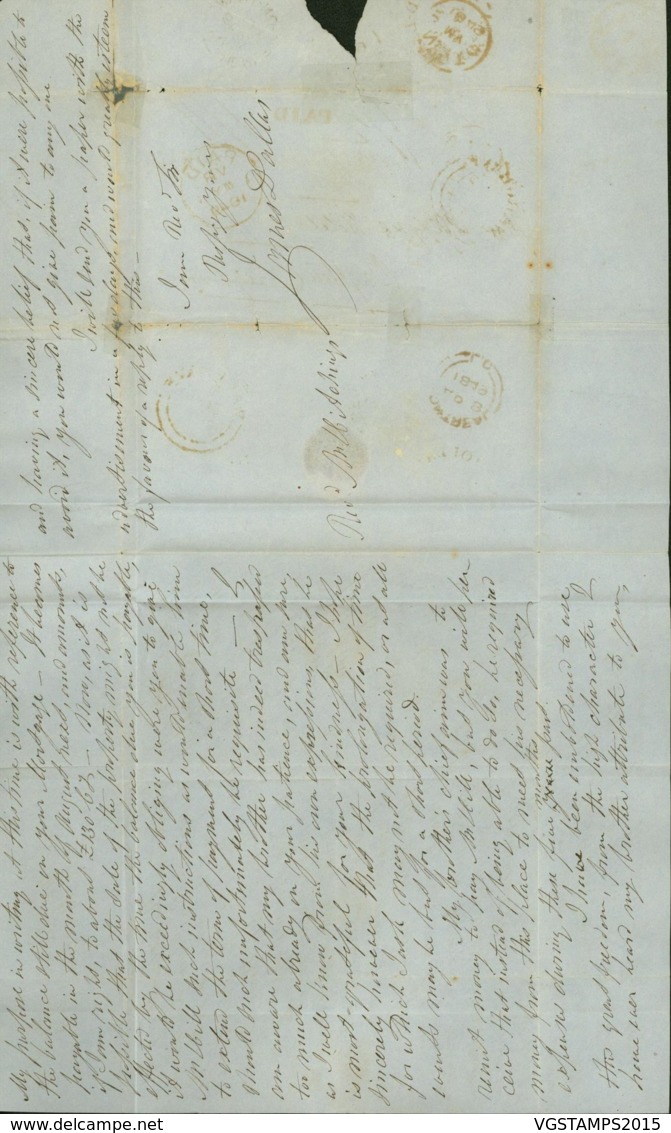 My purpose in writing at this time is with reference to
the balance still due on your Mortgage — It becomes
payable in the month of August next, and amounts,
if I am right, to about £130 — Now, as it is
possible that the sale of the property might not be
effected by the time the balance due you is payable
it would be exceedingly obliging were you to give
Mr Hill such instructions as would enable him
to extend the term of payment for a short time,
should such unfortunately be requisite — I
am aware that my brother has indeed trespassed
too much already on your patience, and am sure,
as I well know from his own expressions that he
is most grateful for your kindness — I hope
sincerely however that the prolongation of time
for which I ask may not be required, or at all
events may be but for a short period.
My brother's chief aim was to
remit money to pay Mr Hill, but you will per
ceive that instead of being able to do so, he required
money from this place to meet his necessary
expenses during these five months past
I have been emboldened to use
this great freedom, from the high character I
have ever heard my brother attribute to you,
and having a sincere belief that, if it were possible to
avoid it, you would not give pain to any one
I will send you a paper with the
advertisement in a few days, and would greatly esteem
the favour of a reply to this —
I am Rev Sir
Resp'y yours
James Dallas
Rev'd
PAID
VGSTAMPS2015